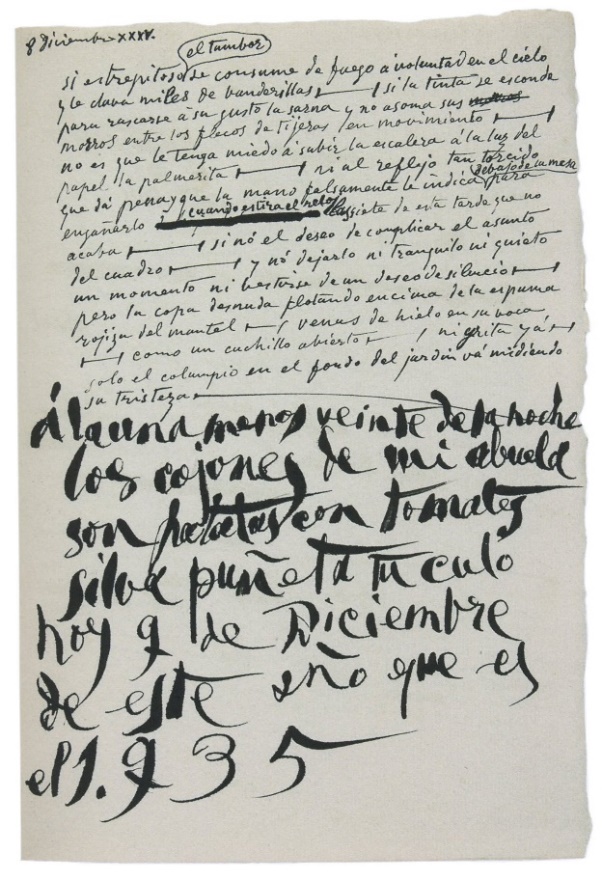 8 Diciembre XXXV.
el tumbor
si estrepitoso se consume de fuego á voluntad en el cielo
y le clava miles de banderillas si la tinta se esconde
para rascarse á su gusto la sarna y no asoma sus
morros entre los flecos de tijeras en movimiento
no es que le tenga miedo á subir la escalera á la luz del
papel la palmerita ni al reflejo tan torcido
debajo de la mesa
que dá pena y que la mano falsamente le indica para
engañarlo cuando estira el siete de esta tarde que no
acaba si nó el deseo de complicar el asunto
del cuadro y nó dejarlo ni tranquilo ni quieto
un momento ni vestirse de un deseo de silencio
pero la copa desnuda flotando encima de la espuma
rojiza del mantel venus de hielo en su boca
como un cuchillo abierto ni grita yá
solo el columpio en el fondo del jardin vá midiendo
su tristeza
á la una menos veinte de la noche
los cojones de mi abuela
son patatas con tomates
silva puñeta tu culo
hoy 9 de Diciembre
de este año que es
el 1.935